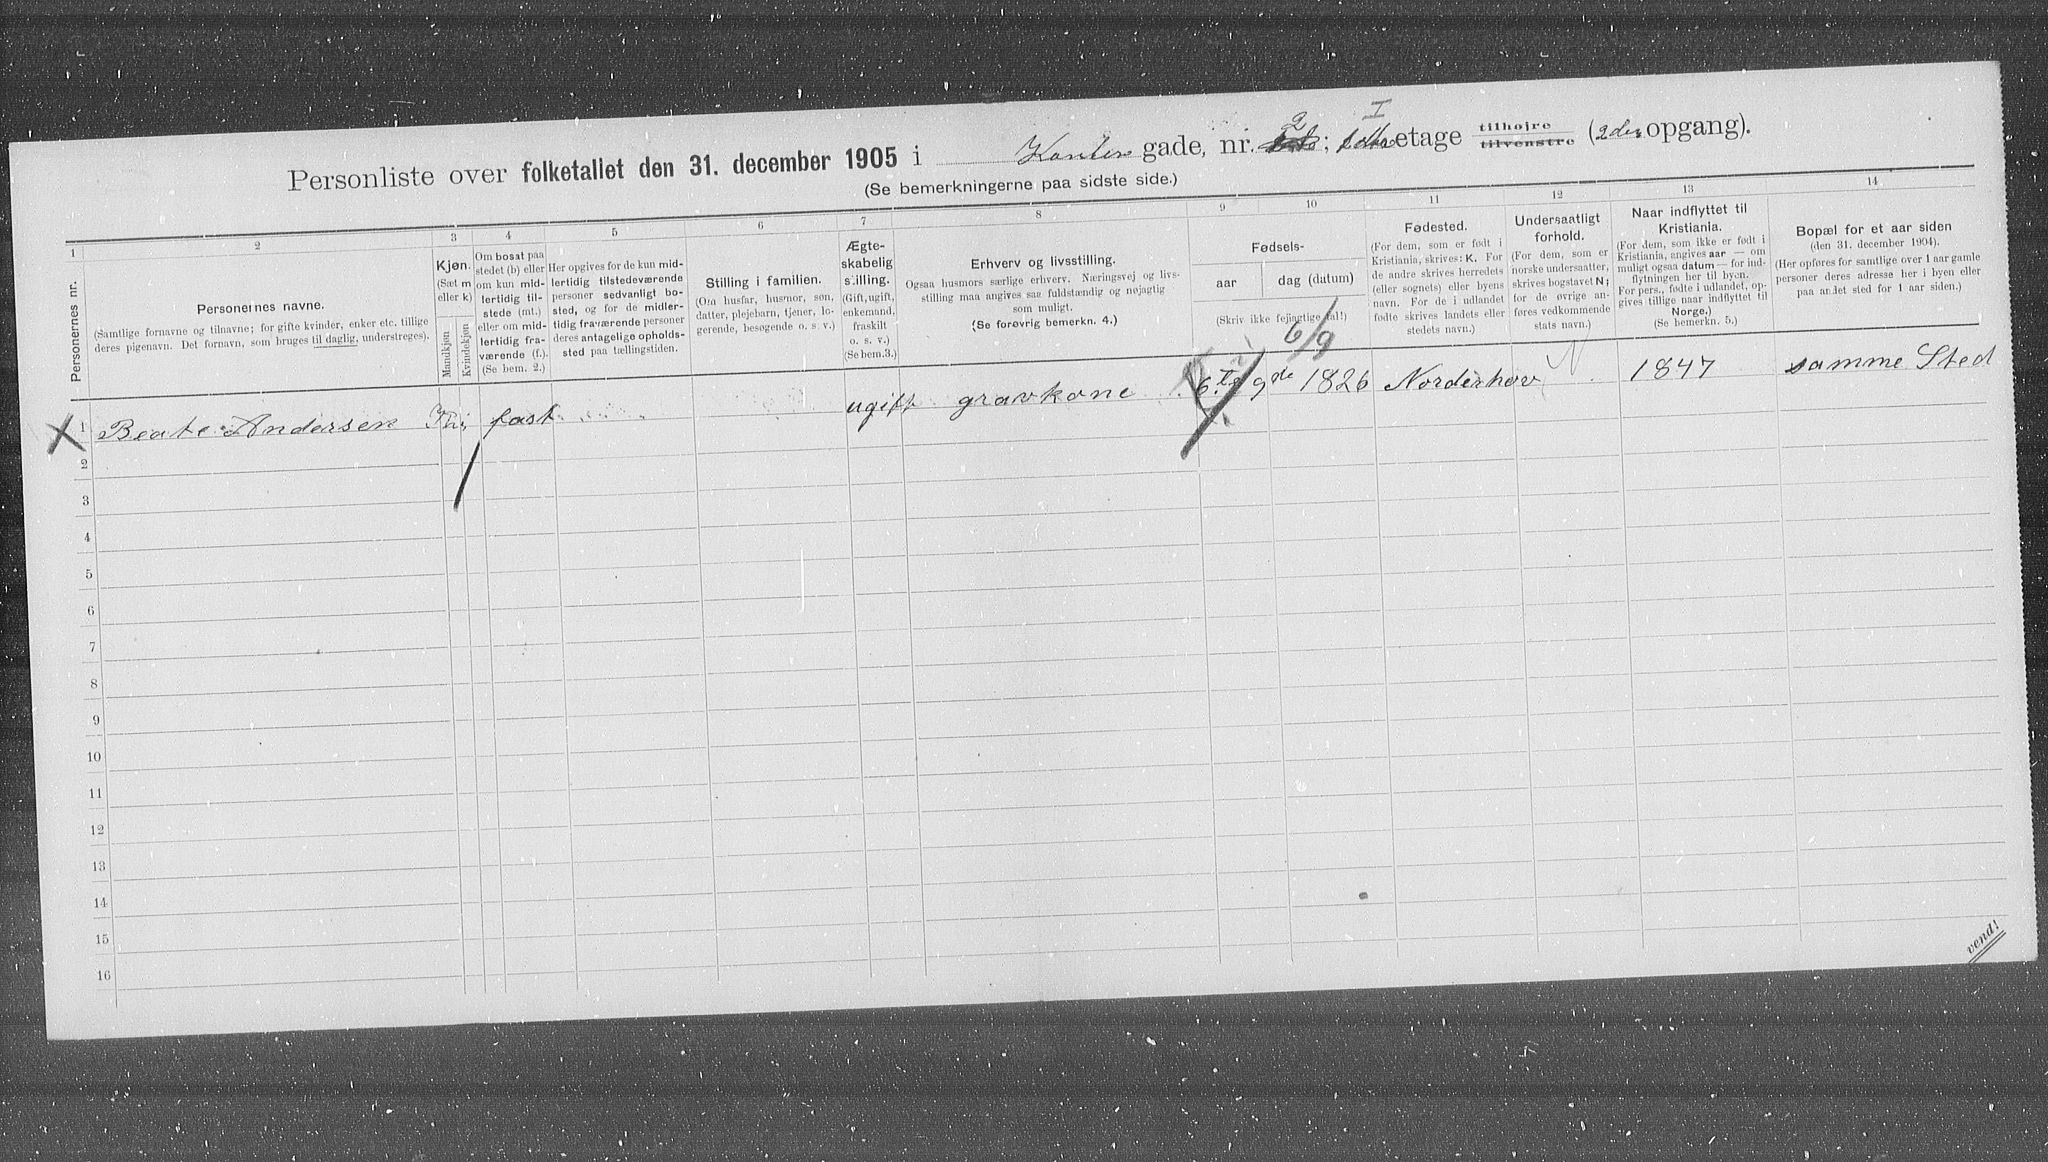 Personliste over folketallet den 31. december 1905 i Kanter gade, nr. 2; I etage tilhøjre tilvenstre (2den opgang).
(Se bemerkningerne paa sidste side.)
1 2 3 4 5 6 7 8 9 10 11 12 13 14
Personernes nr.
Personernes navne.
(Samtlige fornavne og tilnavne; for gifte kvinder, enker etc. tillige
deres pigenavn. Det fornavn, som bruges til daglig, understreges).
Kjøn.
(Sæt m
eller k)
Mandkjøn
Kvindekjøn
Om bosat paa
stedet (b) eller
om kun mid-
lertidig til-
stede (mt.)
eller om mid-
lertidig fra-
værende (f.).
(Se bem. 2.)
Her opgives for de kun mid-
lertidig tilstedeværende
personer sedvanlig bo-
sted, og for de midler-
tidig fraværende personer
deres antagelige opholds-
sted paa tællingstiden.
Stilling i familien.
(Om husfar, husmor, søn,
datter, plejebarn, tjener, lo-
gerende, besøgende o. s. v.)
Ægte-
skabelig
stilling.
(Gift, ugift,
enkemand,
fraskilt
o. s. v.)
(Se bem.3.)
Erhverv og livsstilling.
Ogsaa husmors særlige erhverv. Næringsvej og livs-
stilling maa angives saa fuldstændig og nøjagtig
som muligt.
(Se forøvrig bemerkn. 4.)
Fødsels-
aar
dag (datum)
(Skriv ikke fejagtige tal!)
6/9
Fødested.
(For dem, som er født i
Kristiania, skrives: K. For
de andre skrives herredets
(eller sognets) eller byens
navn. For de i udlandet
fødte skrives landets eller
stedets navn.)
Undersaatligt
forhold.
(For dem, som er
norske undersaatter,
skrives bogstavet N;
for de øvrige an-
føres vedkommende
stats navn.)
Naar indflyttet til
Kristiania.
(For dem, som ikke er født i
Kristiania, angives aar — om
muligt ogsaa datum — for ind-
flytningen her til byen.
For pers., fødte i udlandet, op-
gives tillige naar indflyttet til
Norge.)
(Se bemerkn. 5.)
Bopæl for et aar siden
(den 31. december 1904).
(Her opføres for samtlige over 1 aar gamle
personer deres adresse her i byen eller
paa andet sted for 1 aar siden.)
1 Beate Andersen fast ugift gravkone 6.te 9de 1826 Norderhov N 1847 samme Sted
2
3
4
5
6
7
8
9
10
11
12
13
14
15
16
vend!